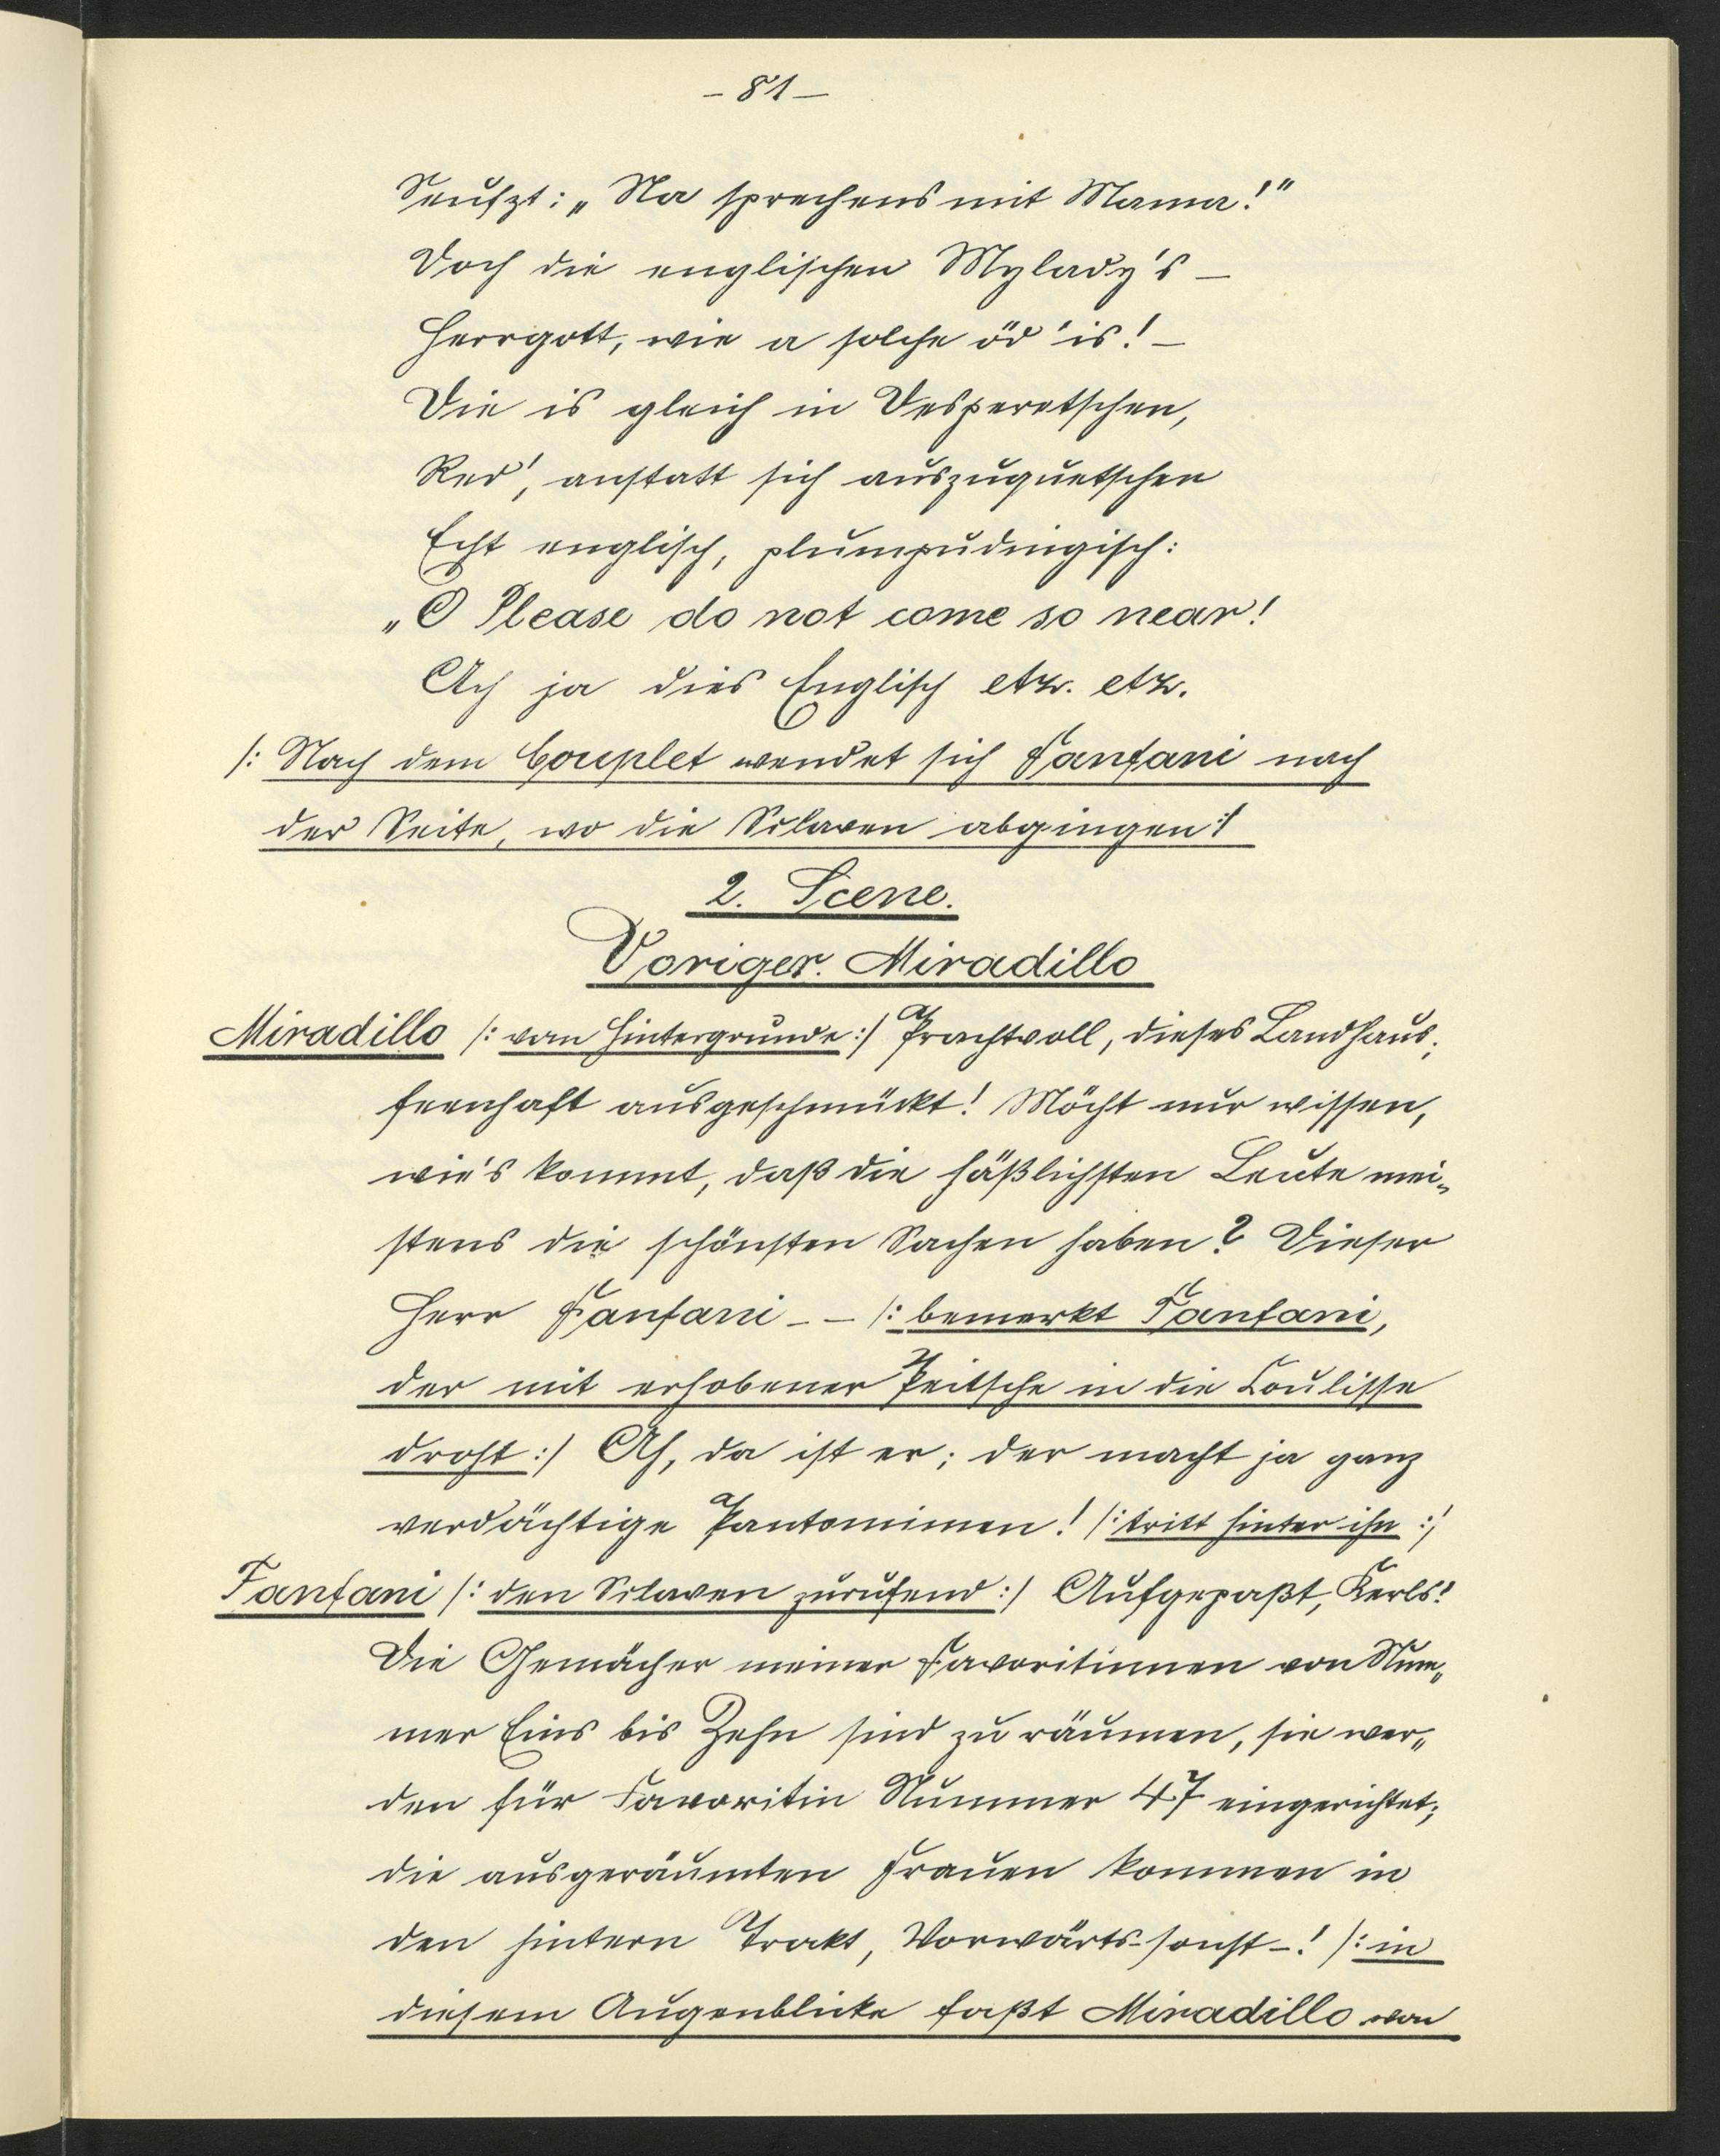 - 81 -
Seufzt: „Na sprechens mit Mama!"
Doch die englischen Mylady's –
Herrgott, wie a solche öd 'is! –
Die is gleich in Desperetschen,
Red', anstatt sich auszuquetschen
Echt englisch, plumpudingisch:
„O Please do not come so near!
Ach ja dies Englisch etz. etz.
/: Nach dem Couplet wendet sich Fanfani nach
der Seite, wo die Sclaven abgingen :/
2. Scene.
Voriger. Miradillo
Miradillo /: vom Hintergrunde :/ Prachtvoll, dieses Landhaus,
feenhaft ausgeschmückt! Möcht nur wissen,
wie's kommt, daß die häßlichsten Leute mei„
stens die schönsten Sachen haben? Dieser
Herr Fanfani – – /: bemerkt Fanfani,
der mit erhobener Peitsche in die Coulisse
droht :/ Ah, da ist er; der macht ja ganz
verdächtige Pantomimen! /: tritt hinter ihn :/
Fanfani /: den Sclaven zurufend :/ Aufgepaßt, Kerls!
Die Gemächer meiner Favoritinnen von Num„
mer Eins bis Zehn sind zu räumen, sie wer„
den für Favoritin Nummer 47 eingerichtet;
die ausgeräumten Frauen kommen in
den hintern Trakt, Vorwärts – sonst –! /: in
diesem Augenblicke faßt Miradillo von